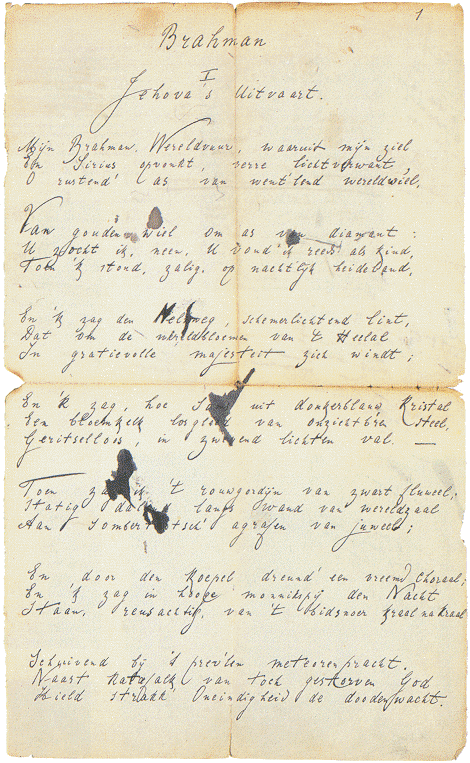 1
Brahman
I
Jehova's Uitvaart.
Mijn Brahman, Wereldvuur, waaruit mijn ziel
En Sirius opvonkt, verre lichtverwant,
O rustend' as van went'lend wereldwiel,
Van gouden wiel om as van diamant:
U zocht ik, neen, U vond ik reeds als kind,
Toen 'k stond, zalig, op nachtlijk heideland,
En 'k zag den Melkweg, schemerlichtend lint,
Dat om de wereldbloemen van 't Heelal
In gratievolle majesteit zich windt;
En 'k zag, hoe uit donkerblauw kristal
Een bloemkelk losgleed van onzichtb'ren steel,
Geritselloos, in zwevend lichten val. —
Toen zag ik 't rouwgordijn van zwart fluweel;
Statig langs wand van wereldzaal
Aan agrafen van juweel;
En door den koepel dreund' een vreemd Choraal;
En 'k zag in hooge monnikspij den Nacht
Staan, reusachtig, van 't bidsnoer kraal na kraal
Schuivend bij 't prev'len meteorenpracht.
Naast Katafalk van toch gestorven God
Hield strak Oneindigheid de doodenwacht.